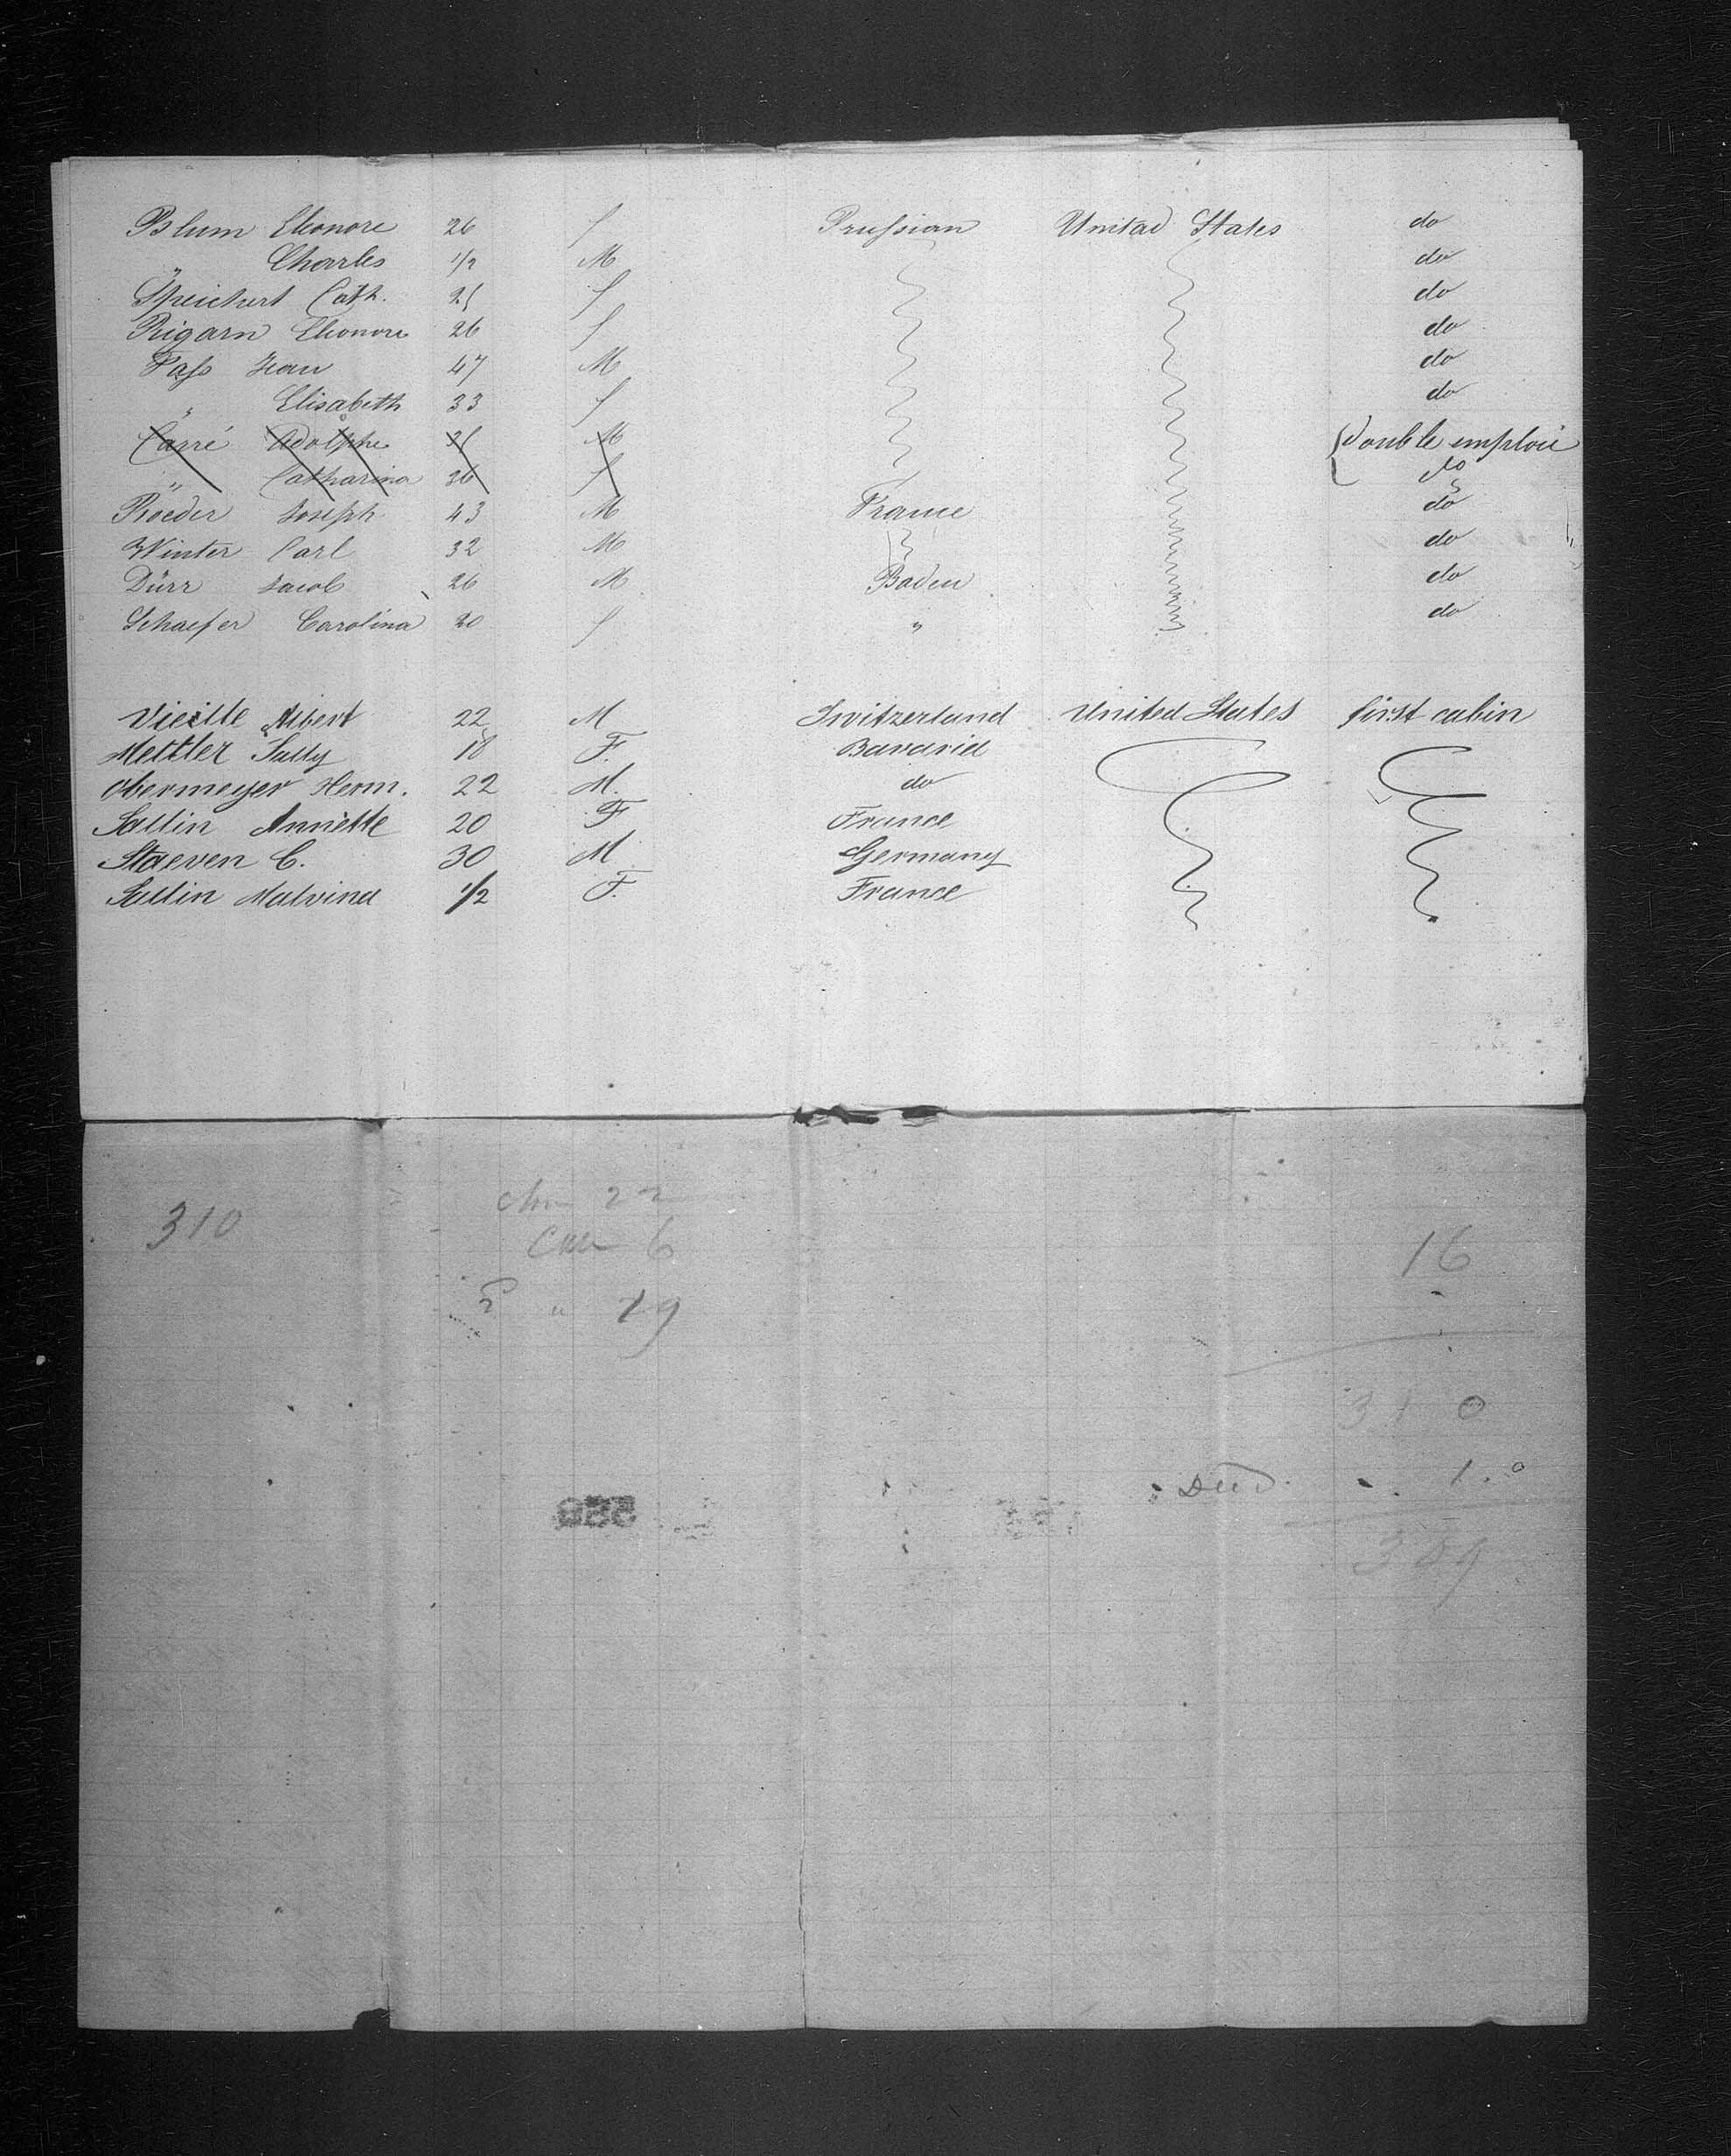 Blum Eleonore 26 f Prussian United States do
" Charles 1/2 M do
Speichert Cath. 25 f do
Rigarn Eleonore 26 f do
Fass Jean 47 M do
" Elisabeth 33 f do
Carré Adolphe M double emploie
" Catharina 36 f do
Roeder Joseph 43 M France do
Winter Carl 32 M do
Dürr Jacob 26 M Baden do
Schaefer Carolina 20 f " do
Vieille Albert 22 M Switzerland United States first cabin
Mettler Sally 18 F. Bavaria
Obermeyer Herm. 22 M. do
Sallin Annette 20 F France
Staeven C. 30 M Germany
Sallin Malvina 1/2 F. France
310
22
6
" 19
16
310
Died 1.
309